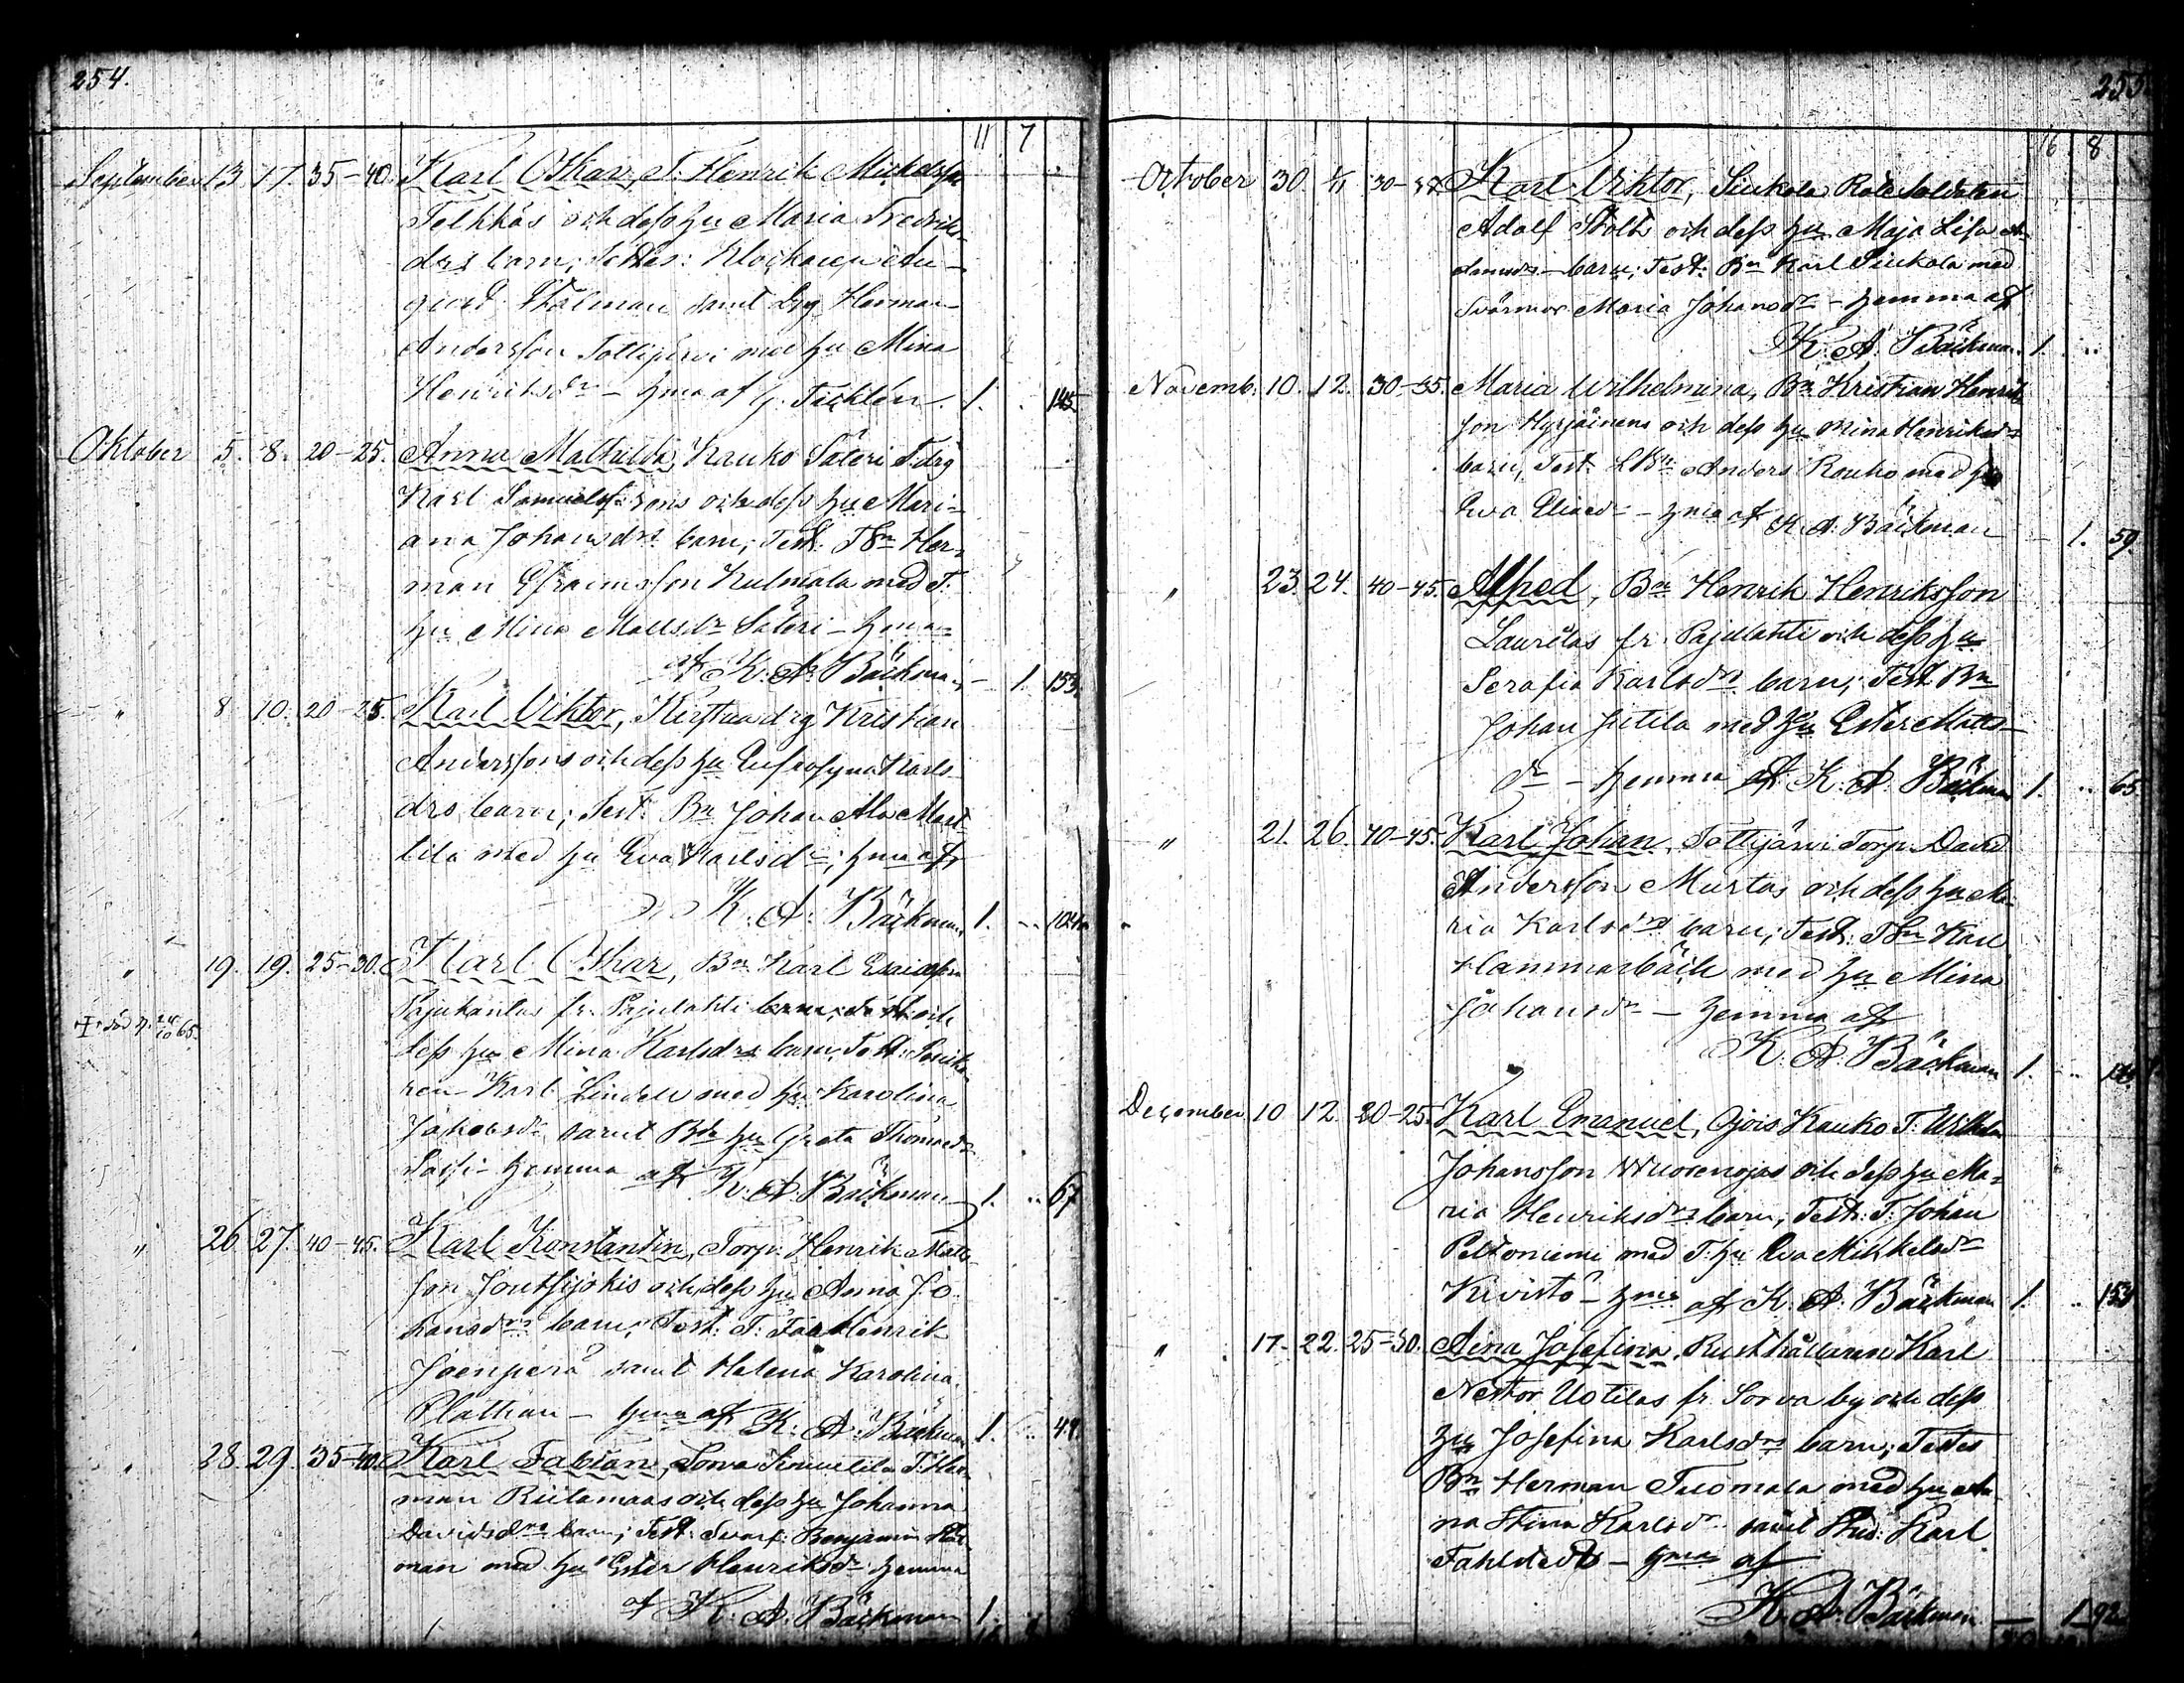 254.
11 7
September 13 17. 35-40. Karl Oskar, T. Henrik Mickelsson
och dess hu Maria Fredriks-
drs barn; Testes: Klockaren Au-
gust Thalman samt Drg Herman
Andersson Tottijärvi med hu Mina
Henriksdr - hma af G. Ticklén. 1. 145
Oktober 5. 8. 20-25. Anna Mathilda, Kauko Säteri T.drg
Karl Samuelssons och dess hu Mari-
ana Johansdrs barn; Test: TSn Her-
man Efraimsson Kulmala med T.
hu Mina Mattsdr Säteri - hma
af K. A. Bäckman - 1. 153.
" 8 10. 20-25. Karl Viktor, drg Kristian
Anderssons och dess hu Eufrosyna Karls-
drs barn; Test: Bn Johan Ala Mart-
tila med hu Eva Karlsdr; hma af
K. A. Bäckman 1. 104.
" 19. 19. 25-30. Karl Oskar, Bn Karl
Pajukantas fr. Pajulahti
dess hu Mina Karlsdrs barn; Test:
ren Karl Lindell med hu Karolina
Jakobsdr samt Bde hu Greta Thomasdr
Sassi - hemma af K. A. Bäckman 1. 67
+ död d. 24/10 65.
" 26 27. 40-45. Karl Konstantin, Torp. Henrik Matts-
son Joutsijokis och dess hu Anna Jo-
hansdrs barn; Test: T. Henrik
Joenperä samt Helena Karolina
Pläthan - hma af K. A. Bäckman 1. 44.
" 28. 29. 35-40. Karl Fabian, Sorva T. Her-
man Riilamaas och dess hu Johanna
Davidsdrs barn; Test: Benjamin
man med hu Ester Henriksdr hemma
af K. A. Bäckman 1.
255
16 8
October 30. 1/11 30-35 Karl Viktor, Siukola Rote Soldaten
Adolf Stolts och dess hu Maja Lisa A-
damsdrs barn; Test: Bn Karl Siukola med
Svärmor Maria Johansdr - hemma af
K. A. Bäckman. 1. ..
Novemb. 10. 12. 30-35. Maria Wilhelmina, Bn Kristian Henriks-
son Hyrjäinens och dess hu Mina Henriksdrs
barn; Test: LBn Anders Rouko med hu
Eva Eliaedr - hma af K. A. Bäckman - 1. 59.
" 23. 24. 40-45. Alfred, Bn Henrik Henriksson
Laurilas fr. Pajulahti och dess hu
Serafia Karlsdrs barn; Test: Bn
Johan Jutila med hu Ester Matts-
dr - hemma af K. A. Bäckman 1. .. 65
" 21. 26. 40-45. Karl Johan, Tottijärvi Torp. David
Andersson Mustas och dess hu Ma-
ria Karlsdrs barn; Test: TSn Karl
Hammarbäck med hu Mina
Johansdr - hemma af
K. A. Bäckman 1. ..
December 10 12. 20-25. Karl Emanuel, Gjois Kauko T. Wilhelm
Johansson Wuorenojas och dess hu Ma-
ria Henriksdrs barn; Test: T. Johan
Peltoniemi med T. hu Eva Mikkelsdr
Kivistö - hma af K. A. Bäckman 1. .. 154
" 17. 22. 25-30. Aina Josefina, Rusthållaren Karl
Nestor Uotilas fr. Sorva by och dess
hu Josefina Karlsdrs barn; Testes
Bn Herman Tuomala med hu An-
na Stina Karlsdr samt Stud: Karl
Fahlstedt - hma af
K. A. Bäckman - 1 92